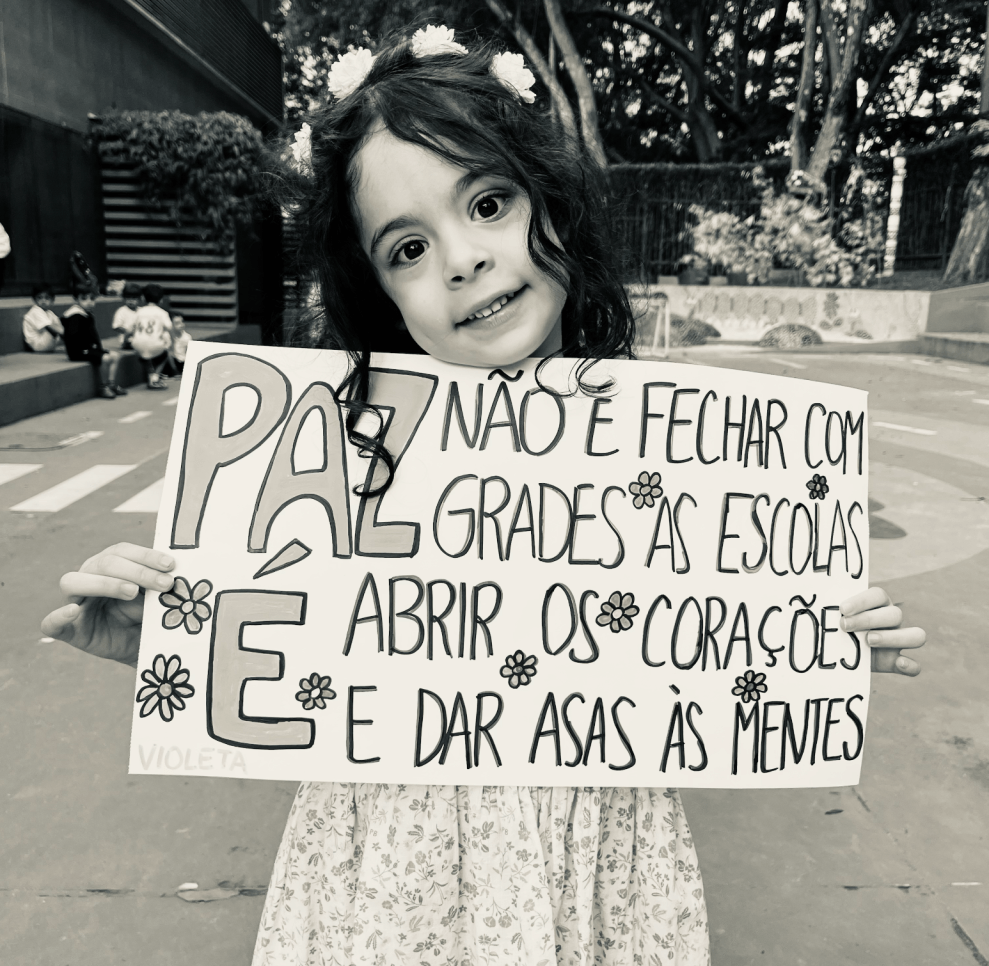 PAZ NÃO É FECHAR COM
GRADES AS ESCOLAS
É ABRIR OS CORAÇÕES
E DAR ASAS ÀS MENTES
VIOLETA
48